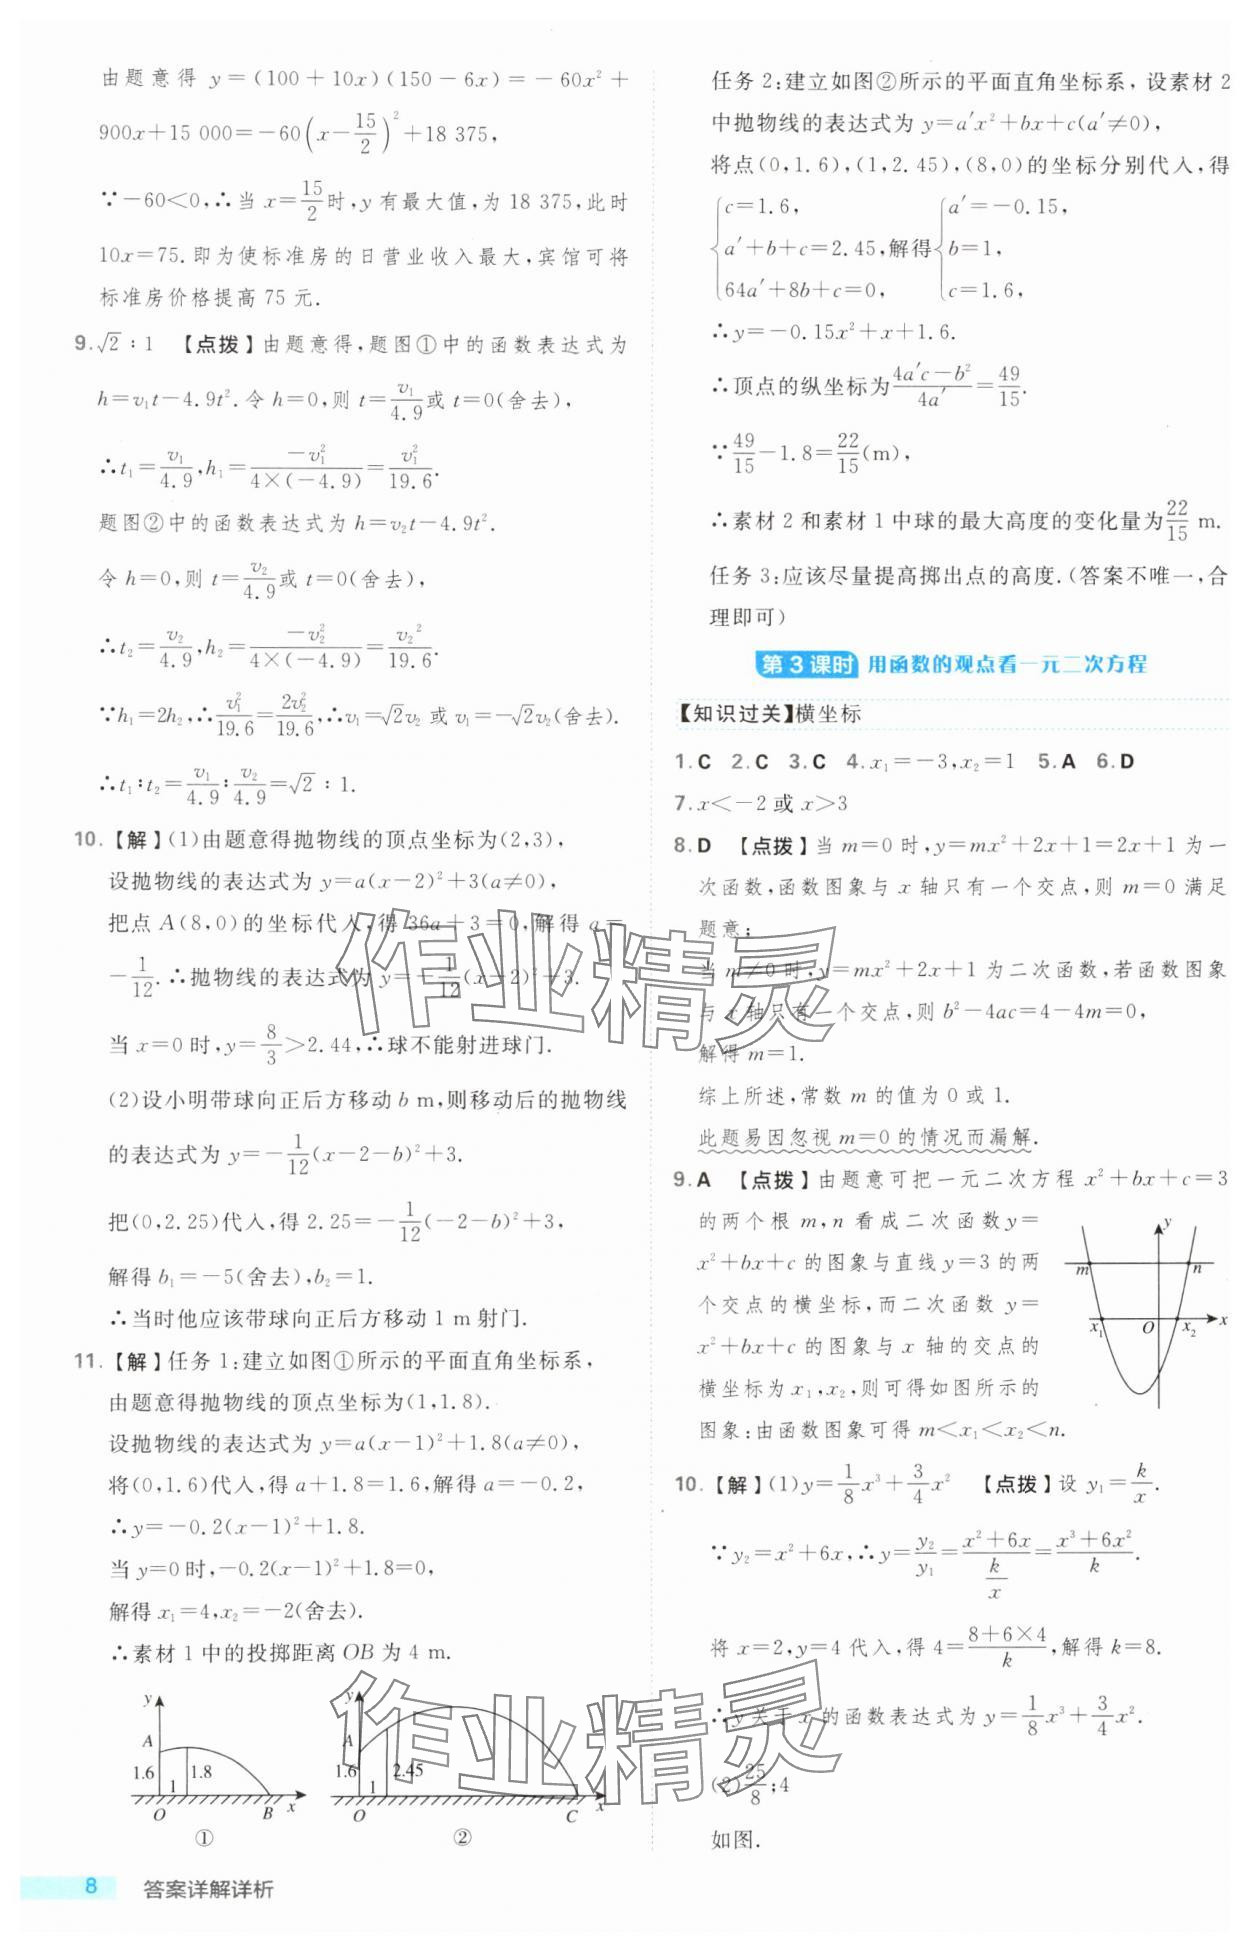 由题意得 y=(100+10x)(150-6x)=-60x²+
900x+15 000=-60(x-15/2)²+18 375,
∵-60<0,∴当 x=15/2时,y 有最大值,为 18 375,此时
10x=75.即为使标准房的日营业收入最大,宾馆可将
标准房价格提高 75 元.
9.√2∶1 【点拨】由题意得,题图①中的函数表达式为
h=v₁t-4.9t².令 h=0,则 t=v₁/4.9或 t=0(舍去),
∴t₁=v₁/4.9,h₁=-v₁²/(4×(-4.9))=v₁²/19.6.
题图②中的函数表达式为 h=v₂t-4.9t².
令 h=0,则 t=v₂/4.9或 t=0(舍去),
∴t₂=v₂/4.9,h₂=-v₂²/(4×(-4.9))=v₂²/19.6.
∵h₁=2h₂,∴v₁²/19.6=2v₂²/19.6,∴v₁=√2v₂ 或 v₁=-√2v₂(舍去).
∴t₁∶t₂=v₁/4.9∶v₂/4.9=√2∶1.
10.【解】(1)由题意得抛物线的顶点坐标为(2,3),
设抛物线的表达式为 y=a(x-2)²+3(a≠0),
把点 A(8,0)的坐标代入,得 36a+3=0,解得 a=
-1/12.∴抛物线的表达式为 y=-1/12(x-2)²+3.
当 x=0 时,y=8/3>2.44,∴球不能射进球门.
(2)设小明带球向正后方移动 b m,则移动后的抛物线
的表达式为 y=-1/12(x-2-b)²+3.
把(0,2.25)代入,得 2.25=-1/12(-2-b)²+3,
解得 b₁=-5(舍去),b₂=1.
∴当时他应该带球向正后方移动 1 m 射门.
11.【解】任务 1:建立如图①所示的平面直角坐标系,
由题意得抛物线的顶点坐标为(1,1.8).
设抛物线的表达式为 y=a(x-1)²+1.8(a≠0),
将(0,1.6)代入,得 a+1.8=1.6,解得 a=-0.2,
∴y=-0.2(x-1)²+1.8.
当 y=0 时,-0.2(x-1)²+1.8=0,
解得 x₁=4,x₂=-2(舍去).
∴素材 1 中的投掷距离 OB 为 4 m.
y
A
1.6
1
1.8
O
B
x
①
y
A
1.6
1
2.45
O
C
x
②
8 答案详解详析
任务 2:建立如图②所示的平面直角坐标系,设素材 2
中抛物线的表达式为 y=a′x²+bx+c(a′≠0),
将点(0,1.6),(1,2.45),(8,0)的坐标分别代入,得
{c=1.6, {a′=-0.15,
a′+b+c=2.45,解得 b=1,
64a′+8b+c=0, c=1.6,
∴y=-0.15x²+x+1.6.
∴顶点的纵坐标为(4a′c-b²)/4a′=49/15.
∵49/15-1.8=22/15(m),
∴素材 2 和素材 1 中球的最大高度的变化量为22/15 m.
任务 3:应该尽量提高掷出点的高度.(答案不唯一,合
理即可)
第 3 课时 用函数的观点看一元二次方程
【知识过关】横坐标
1.C 2.C 3.C 4.x₁=-3,x₂=1 5.A 6.D
7.x<-2 或 x>3
8.D 【点拨】当 m=0 时,y=mx²+2x+1=2x+1 为一
次函数,函数图象与 x 轴只有一个交点,则 m=0 满足
题意;
当 m≠0 时,y=mx²+2x+1 为二次函数,若函数图象
与 x 轴只有一个交点,则 b²-4ac=4-4m=0,
解得 m=1.
综上所述,常数 m 的值为 0 或 1.
此题易因忽视 m=0 的情况而漏解.
9.A 【点拨】由题意可把一元二次方程 x²+bx+c=3
的两个根 m,n 看成二次函数 y=
x²+bx+c 的图象与直线 y=3 的两
个交点的横坐标,而二次函数 y=
x²+bx+c 的图象与 x 轴的交点的
横坐标为 x₁,x₂,则可得如图所示的
图象:由函数图象可得 m<x₁<x₂<n.
y
m
n
x₁
O
x₂
x
10.【解】(1)y=1/8x³+3/4x² 【点拨】设 y₁=k/x.
∵y₂=x²+6x,∴y=y₂/y₁=(x²+6x)/(k/x)=(x³+6x²)/k.
将 x=2,y=4 代入,得 4=(8+6×4)/k,解得 k=8.
∴y 关于 x 的函数表达式为 y=1/8x³+3/4x².
(2)25/8;4
如图.
作业精灵
作业精灵